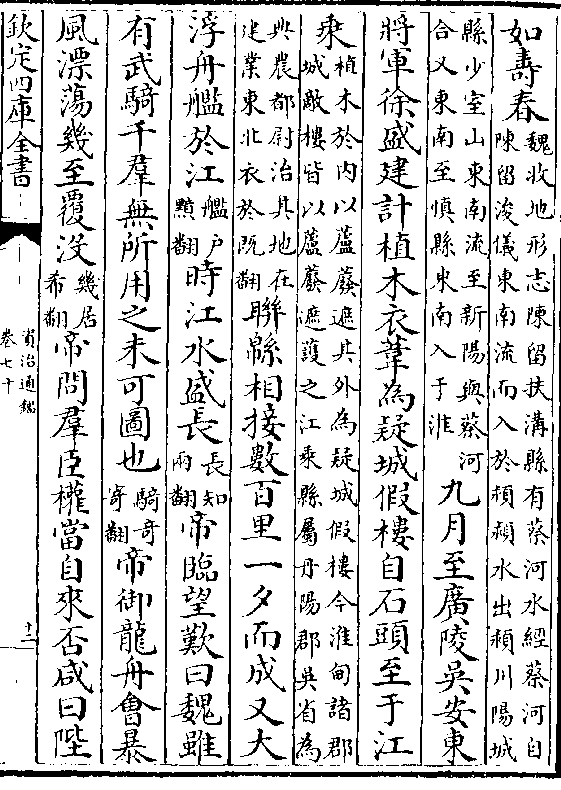 如壽春魏收地形志陳留扶溝縣有蔡河水經蔡河自
陳留浚儀東南流而入於潁潁水出潁川陽城
縣少室山東南流至新陽與蔡河
合又東南至慎縣東南入于淮九月至廣陵吳安東
將軍徐盛建計植木衣葦為疑城假樓自石頭至于江
乘植木於内以蘆䕠遮其外為疑城假樓今淮甸諸郡
城敵樓皆以蘆䕠遮護之江乘縣屬丹陽郡吳省為
典農都尉治其地在
建業東北衣於既翻聯緜相接數百里一夕而成又大
浮舟艦於江艦户
黯翻時江水盛長長知
兩翻帝臨望歎曰魏雖
有武騎千羣無所用之未可圖也騎奇
寄翻帝御龍舟會暴
風漂蕩幾至覆没幾居
希翻帝問羣臣權當自來否咸曰陛
欽定四庫全書
資治通鑑
卷七十
十二